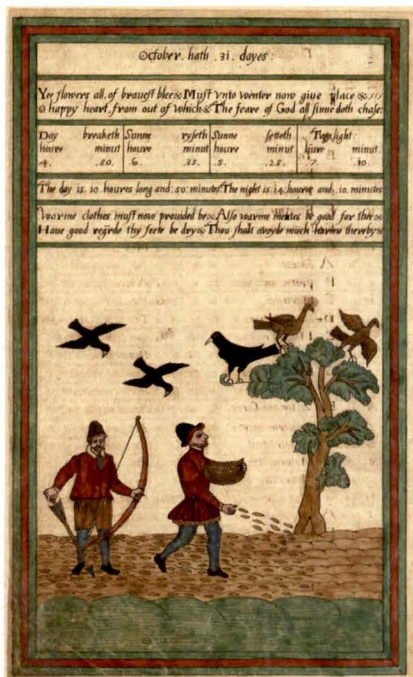 October hath .31. dayes:
Yee flowers all, of brauest blee Must vnto winter now giue place
O happy heart, from out of which The feare of God all sinne doth chase:
Day breaketh Sunne ryseth Sunne setteth Twylight
houre minut houre minut houre minut houre minut.
4. .50. 6. .35. 5. .25. 7. .10.
The day is .10. houres long and .50. minutes. The night is .14. houres and .10. minutes
Warme clothes must now prouided be Also warme meates be good for thee
Haue good regarde thy feete be dry Thou shalt avoyde much harme thereby